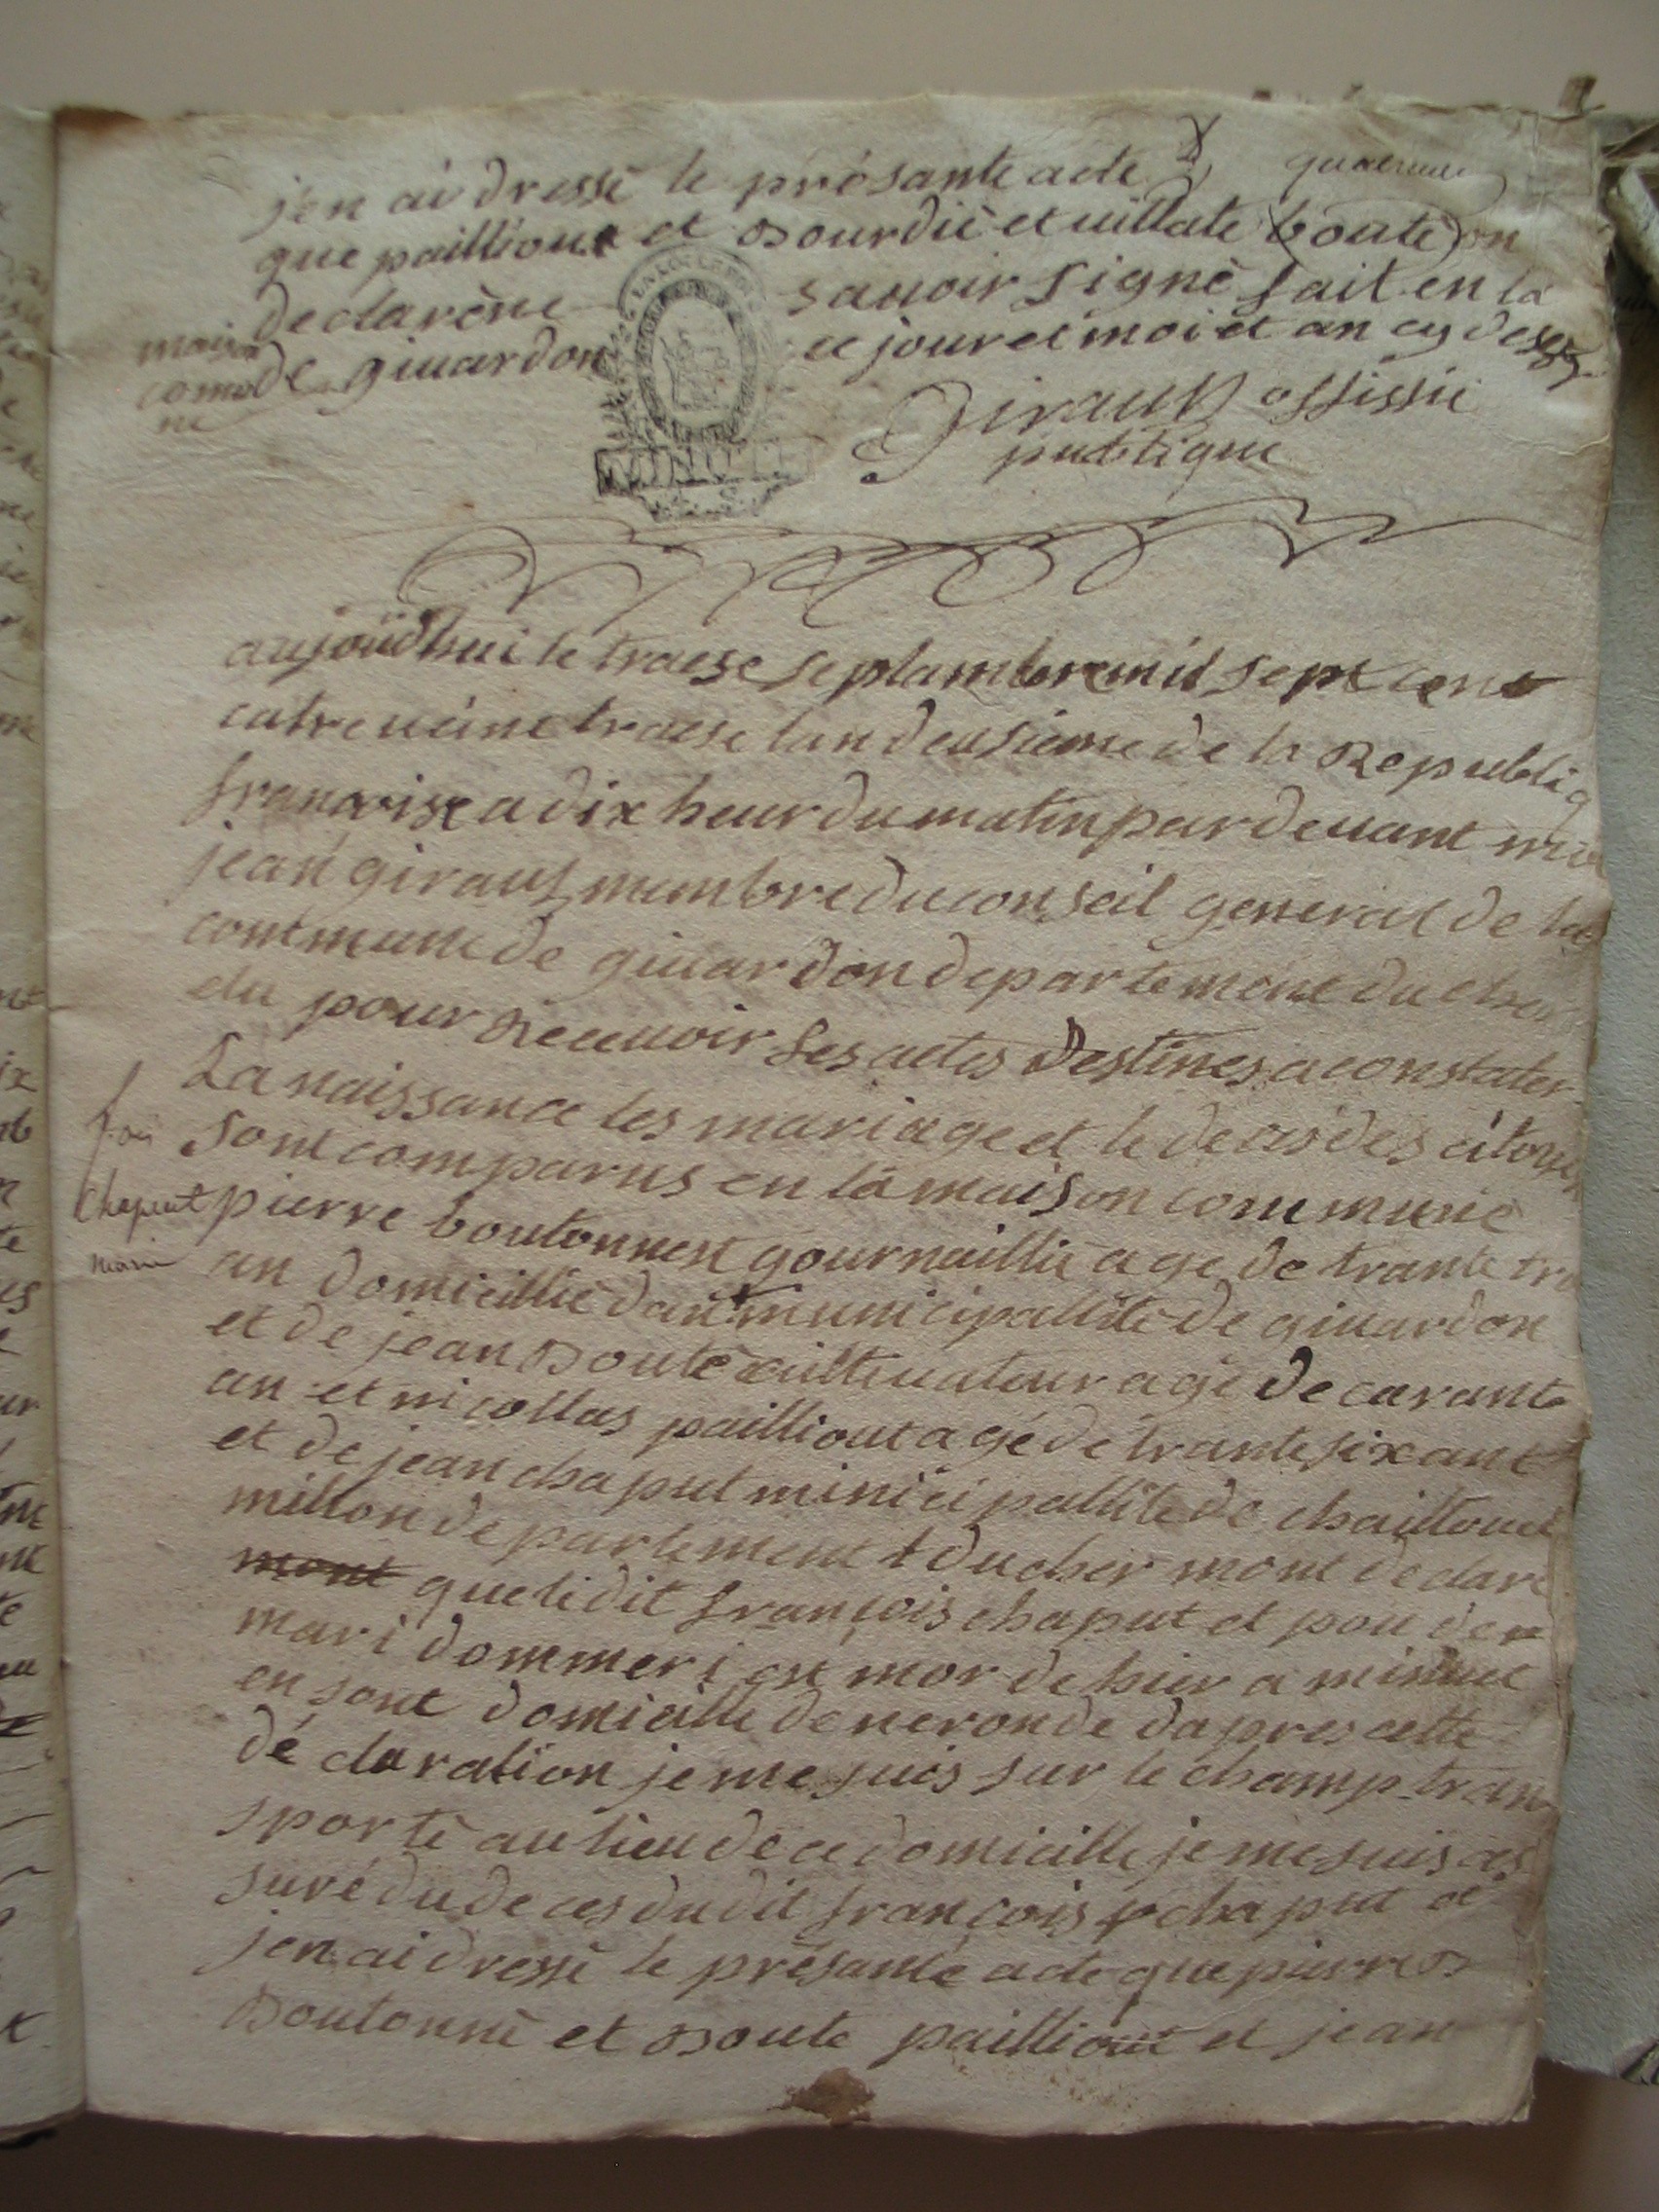 jen ai dressé le présante acte
que paillioux et Bourdié et uillate boutè on
declarène sauoir signè fait en la
maison
comu de giuardon ce jour et moi et an cy deset
ne
Giraud offissié
publique
aujoüdhui le traese septambre mil sept cent
catre ueint traese lan deusieme de la Republiq
francoise a dix heur du matin par deuant moi
jean giraud manbre du conseil general de la
commune de giuardon departement du cher
elu pour Receuoir les actes destines a constater
La naissance les mariage et le deces des citoyen
sont comparus en la maison commune
fois
chaput pierre boutonnest gournaillié age de trante tro
mari
an domicillié dans municipallité de giuardon
et de jean Bouté cultiuateur agé de carante
an et nicollas paillioux agé de trante six ant
et de jean chaput minicipallité de chaillouet
millon departement du cher mont declare
mont que ledit françois chaput et pou der
mari dommeri est mor de hier a minuit
en sont domicille de neronde dapres cette
déclaration je me suis sur le champ tran
sportè au lieu de ce domicille je me suis as
suré du deces dudit françois chaput et
jen ai dressé le présante acte que pierre B
Boutonnè et Boute paillioux et jean